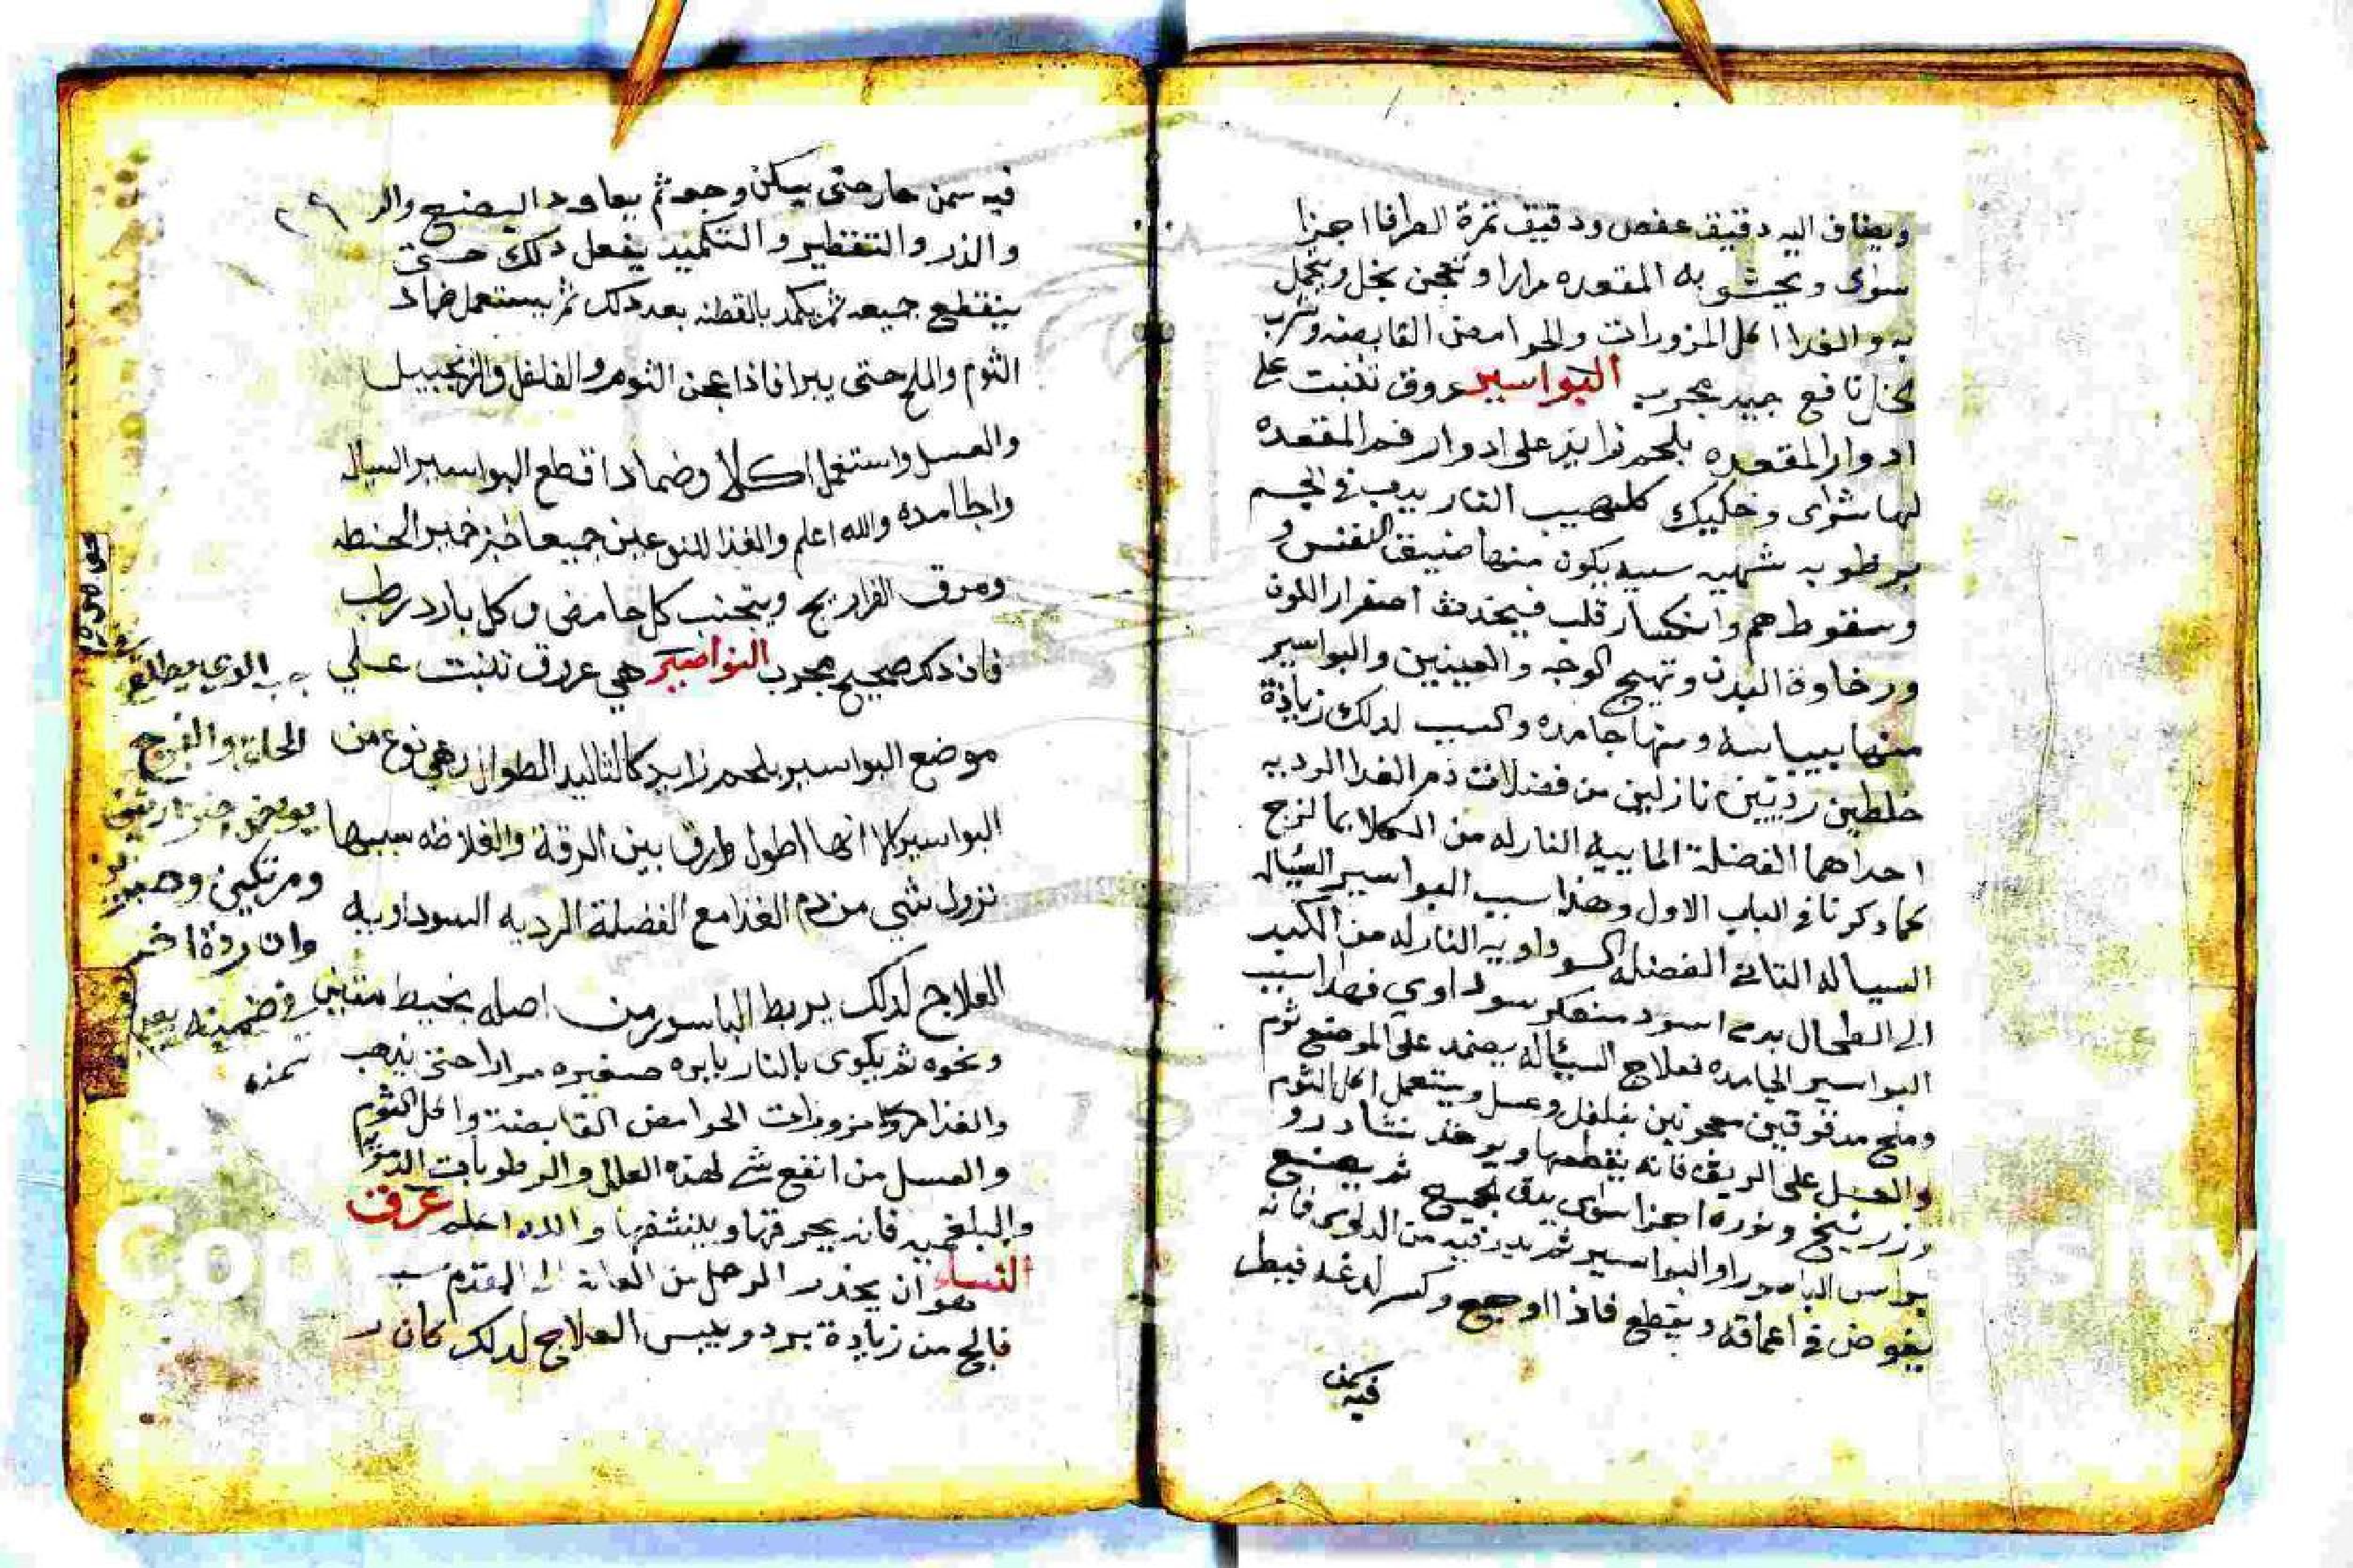 ويضاف اليه دقيق عفص ودقيق ثمرة الطرفا اجزا
سوى ويحشو به المقعده مرارا وتعجن بخل ويتحمل
به والغدا اكل المزورات والحوامض القابضه وشرب
الخل نافع جيد مجرب البواسير عروق تنبت على
ادوار المقعده بلحم زايد على ادوار فم المقعده
لها شوى وحكيك كلهيب النار يدب في الجسم
برطوبه شهيه سببه يكون منها ضيق النفس و
وسقوط هم وانكسار قلب فيحدث اصفرار اللون
ورخاوة البدن وتهيج الوجه والعينين والبواسير
منها سياسه ومنها جامده والسبب لدلك زيادة
خلطين رديين نازلين من فضلات دم الغدا الرديه
احداهما الفضلة المايية النازله من الكلا بما لزج
كما دكرنا في الباب الاول وهذا سبب البواسير السياله
السياله الثاني الفضله السوداويه النازله من الكبد
الى الطحال بدم اسود منعكر سوداوي فهدا سبب
البواسير الجامده فعلاج السياله يضمد على الموضع ثوم
وملح مدقوقين معجونين بفلفل وعسل ويستعمل اكل الثوم
والعسل على الريق فانه يقطعها ويوخد نشادر و
وزرنيخ ونوره اجزا سوى يدق الجميع ثم يضع
براس الباسور او البواسير ثم يدر فيه من الدوى فانه
يغوض في اعماقه ويقطع فاذا اوجع وكسر لدغه فيبطل
فيه سمن
فيه سمن حار حتى يسكن وجعه ثم يعاود البضع والر
والذر والتقطير والتكميد يفعل دلك حتى
ينقطع جميعه ثم يكمد بالقطنه بعد دلك ثم يستعمل ضماد
الثوم والملح حتى يبرا فاذا عجن الثوم والفلفل والزنجبيل
والعسل واستعمل اكلا وضمادا قطع البواسير السيال
والجامده والله اعلم والغذا للنوعين جميعا خبز خمير الحنطه
ومرق الفراريج ويتجنب كل حامض وكل بارد رطب
فان دلك صحيح مجرب النواصير هي عروق تنبت على
موضع البواسير بلحم زايد كالثاليل الطوال وهي نوع من
البواسير الا انها اطول وارق بين الرقة والغلاظه سببها
نزول شي من دم الغذا مع الفضلة الرديه السوداويه
العلاج لدلك يربط الباسور من اصله بخيط متين
ونحوه ثم يكوى بالنار بابره صغيره مرارا حتى يذهب
والغذا مزورات الحوامض القابضة واكل الثوم
والعسل من انفع شي لهذه العلل والرطوبات
والبلغميه فانه يحرقها وينشفها والله اعلم عرق
النساء هو ان يخدر الرجل من العانه الى المقدم
فالج من زيادة برد ويبس العلاج لدلك كان
الدي يطلع
الحلق والفرج
يوخد
ومرتكين
وان ردة اخر